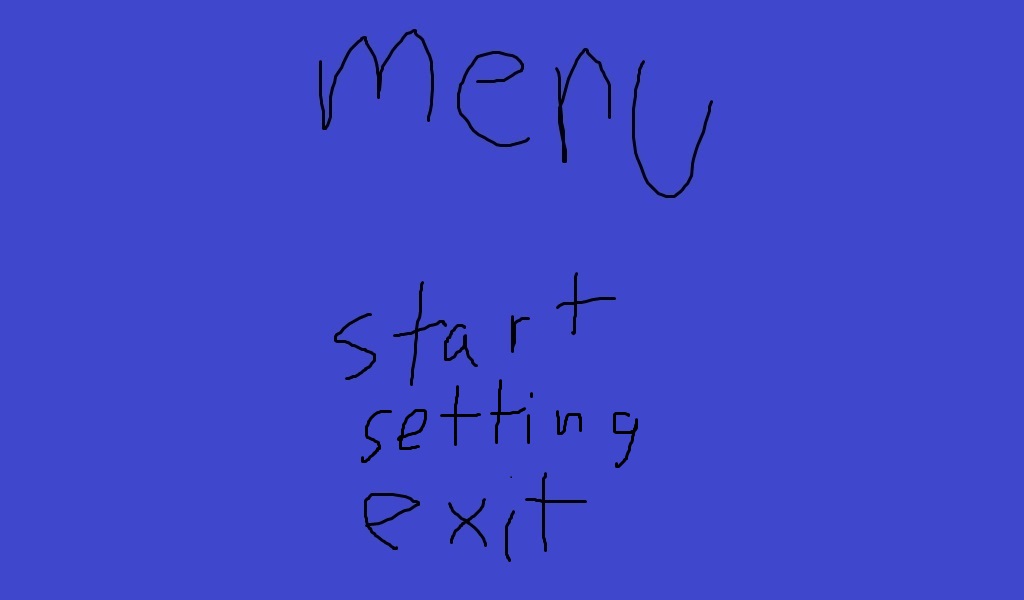 menu
start
setting
exit